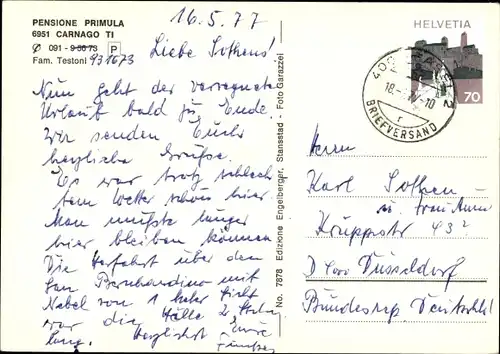 PENSIONE PRIMULA
6951 CARNAGO TI
✆ 091 - 9 56 73 P
931673
Fam. Testoni
16.5.77
Liebe Sothens!
Nun geht der verregnete
Urlaub bald zu Ende.
Wir senden Euch
herzliche Grüße.
Es war trotz schlech
tem Wetter schön hier
Man müßte länger
hier bleiben können
Die Herfahrt über den
San Bernhardino mit
Nebel von 1 heter Sicht
war die Hölle 2 Stdn
lang. Herzlichst Eure
No. 7878 Edizione Engelberger, Stansstad - Foto Garazzei
HELVETIA
70
BRIEFVERSAND
Herrn
Karl Sothen
u. Frau
Kruppstr 43²
D 400 Düsseldorf
Bundesrep Deutschld